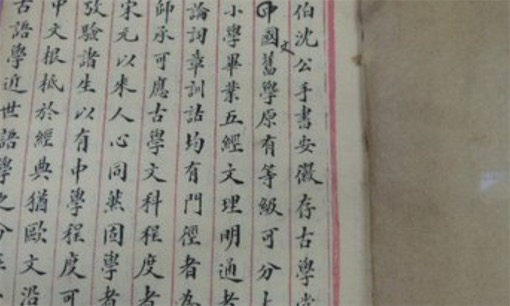 伯沈公手書安徽存古學堂
中國文舊學原有等級可分上
小學畢業五經文理明通者
論詞章訓詁均有門徑者為
師承可應古學文科程度者
宋元以來人心同然固學者
攷驗諸生以有中學程度可
中文根柢於經典猶歐文沿
古語學近世語學之分